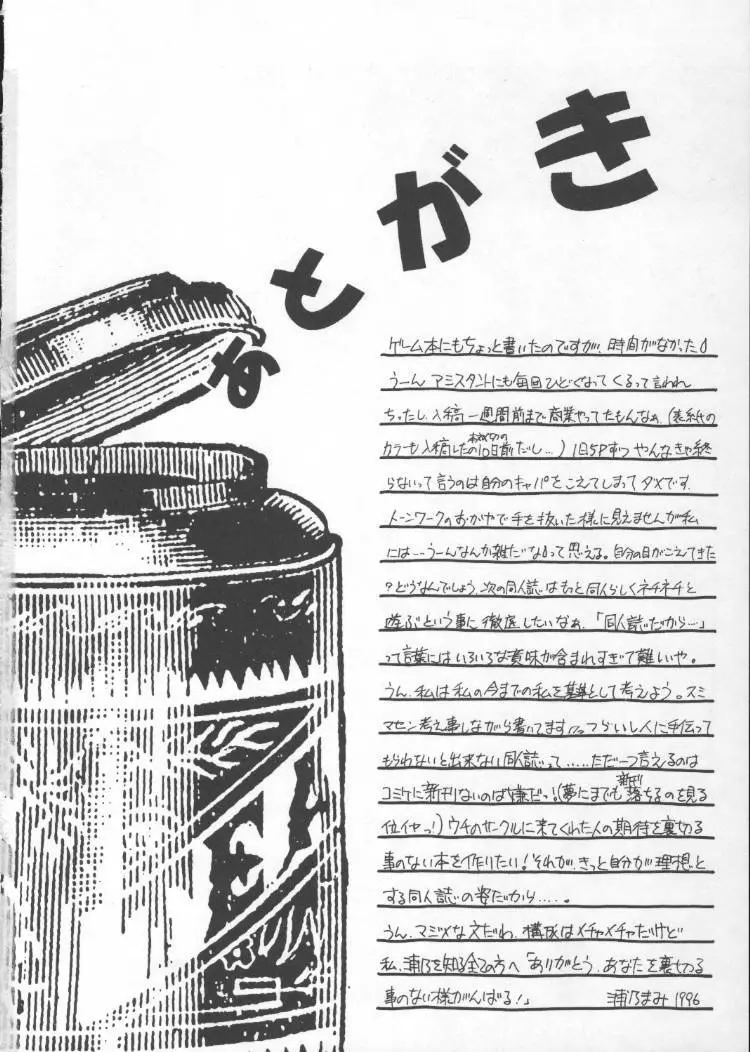 あとがき
ゲーム本にもちょっと書いたのですが、時間がなかった
うーん アシスタントにも毎回ひどくなってくるって言われ
ちったし、入稿一週間前まで商業やってたもんなぁ、(表紙の
カラーも入稿したの本〆切の10日前だし…) 1日5Pずつ やんなきゃ終
らないって言うのは自分のキャパをこえてしまってダメです。
トーンワークのおかげで手を抜いた様に見えませんが私
には…うーんなんか雑だなって思える。自分の目がこえてきた
?どうなんでしょう、次の同人誌はもっと同人らしくネチネチと
遊ぶという事に徹底したいなぁ、「同人誌だから…」
って言葉にはいろいろな意味が含まれすぎて難しいや。
うん、私は私の今までの私を基準として考えよう。スミ
マセン考え事しながら書いてます つらいし人に手伝って
もらわないと出来ない同人誌って……ただ一つ言えるのは
コミケに新刊ないのは嫌だっ!(夢にまでも新刊落ちるのを見る
位イヤっ!)ウチのサークルに来てくれた人の期待を裏切る
事のない本を作りたい!それが、きっと自分が理想と
する同人誌の姿だから……。
うん、マジメな文だわ、構成はメチャメチャだけど
私、浦乃を知る全ての方へ「ありがとう、あなたを裏切る
事のない様がんばる!」 浦乃まみ 1996